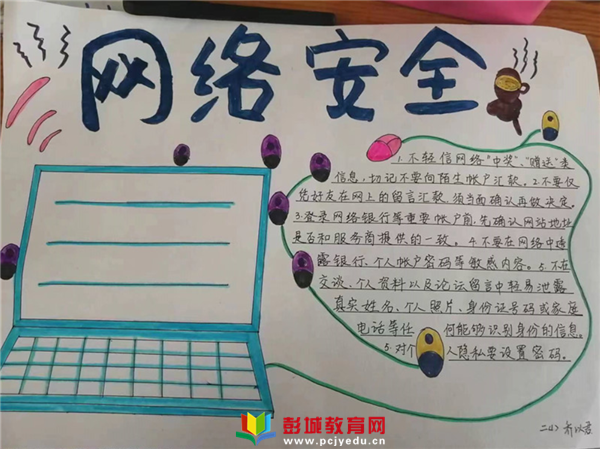 网络安全
1.不轻信网络"中奖"、"赠送"类
信息,切记不要向陌生帐户汇款。2.不要仅
凭好友在网上的留言汇款,须当面确认再做决定。
3.登录网络银行等重要帐户前,先确认网站地址
是否和服务商提供的一致。4.不要在网络中透
露银行、个人帐户密码等敏感内容。5.不在
交谈、个人资料以及论坛留言中轻易泄露
真实姓名、个人照片、身份证号码或家庭
电话等任何能够识别身份的信息。
5.对个人隐私要设置密码。
彭城教育网
www.pcjyedu.cn